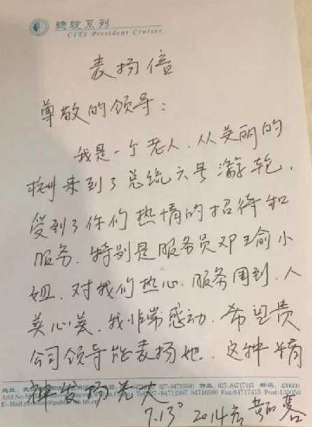 總統系列
CITS President Cruises
表扬信
尊敬的领导：
我是一个老人，从美丽的
杭州来到了总统六号游轮，
受到了你们热情的招待和
服务。特别是服务员邓瑜小
姐，对我们热心，服务周到，人
美心美，我非常感动，希望贵
公司领导能表扬她，这种精
神发扬光大
7.13 2014年